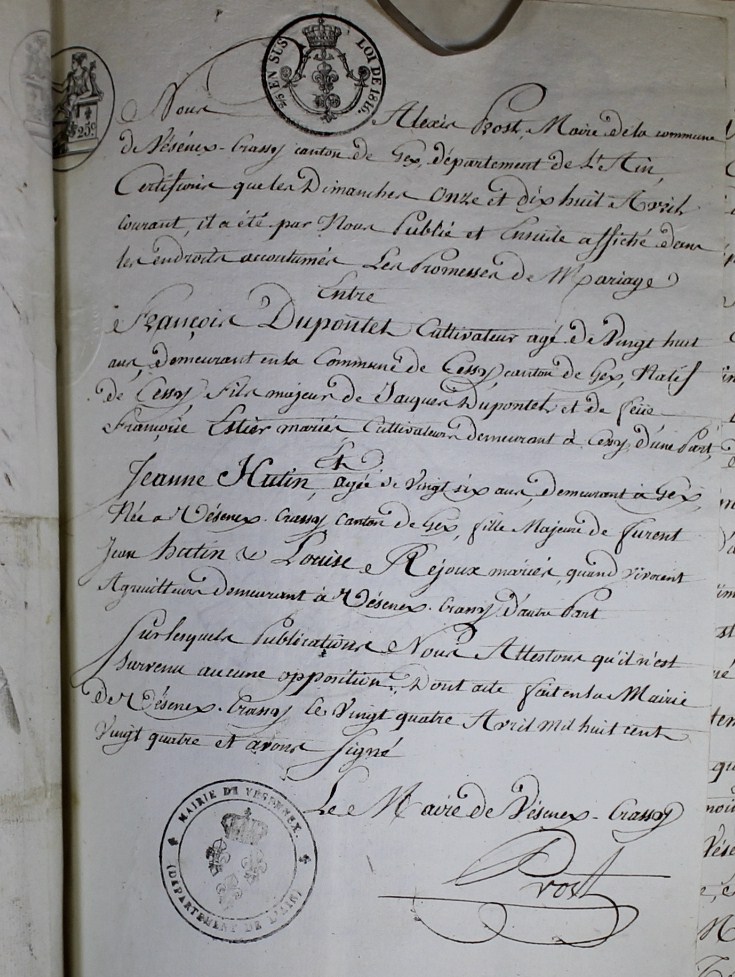 25 EN SUS
LOI DE 1816.
25c
Nous Alexis Prost, Maire de la commune
de Vésenex-Crassy canton de Gex, département de L'Ain,
Certifions que les Dimanches Onze et dix huit Avril
courant, il a été par Nous Publié et Ensuite affiché dans
les endroits accoutumés Les Promesses de Mariage
Entre
François Dupontet Cultivateur agé de Vingt huit
ans, demeurant en la Commune de Cessy, canton de Gex, Natif
de Cessy, Fils majeur de Jacques Dupontet et de feüe
Françoise Estier mariés Cultivateurs demeurant à Cessy, d'une Part,
Et
Jeanne Hutin, agée de Vingt six ans, demeurant à Gex,
Née a Vésenex-Crassy canton de Gex, fille Majeure de furent
Jean hutin & Louise Réjoux mariés, quand vivoient
Agriculteurs demeurant à Vésenex-Crassy D'autre Part
Sur lesquels Publications Nous Attestons qu'il n'est
Survenu aucune opposition, Dont acte fait en la Mairie
de Vésenex-Crassy le Vingt quatre Avril mil huit cent
Vingt quatre et avons Signé
Le Maire de Vésenex-Crassy
Prost
MAIRIE DE VESENNEX.
(DÉPARTEMENT DE L'AIN)